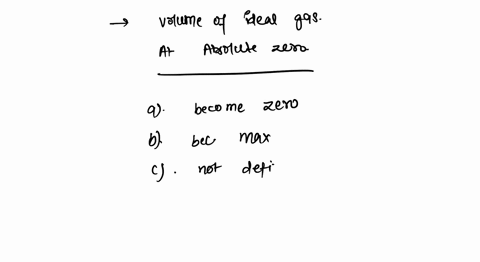 → volume of ideal gas.
At Absolute zero
a). become zero
b). bec max
c). not defi